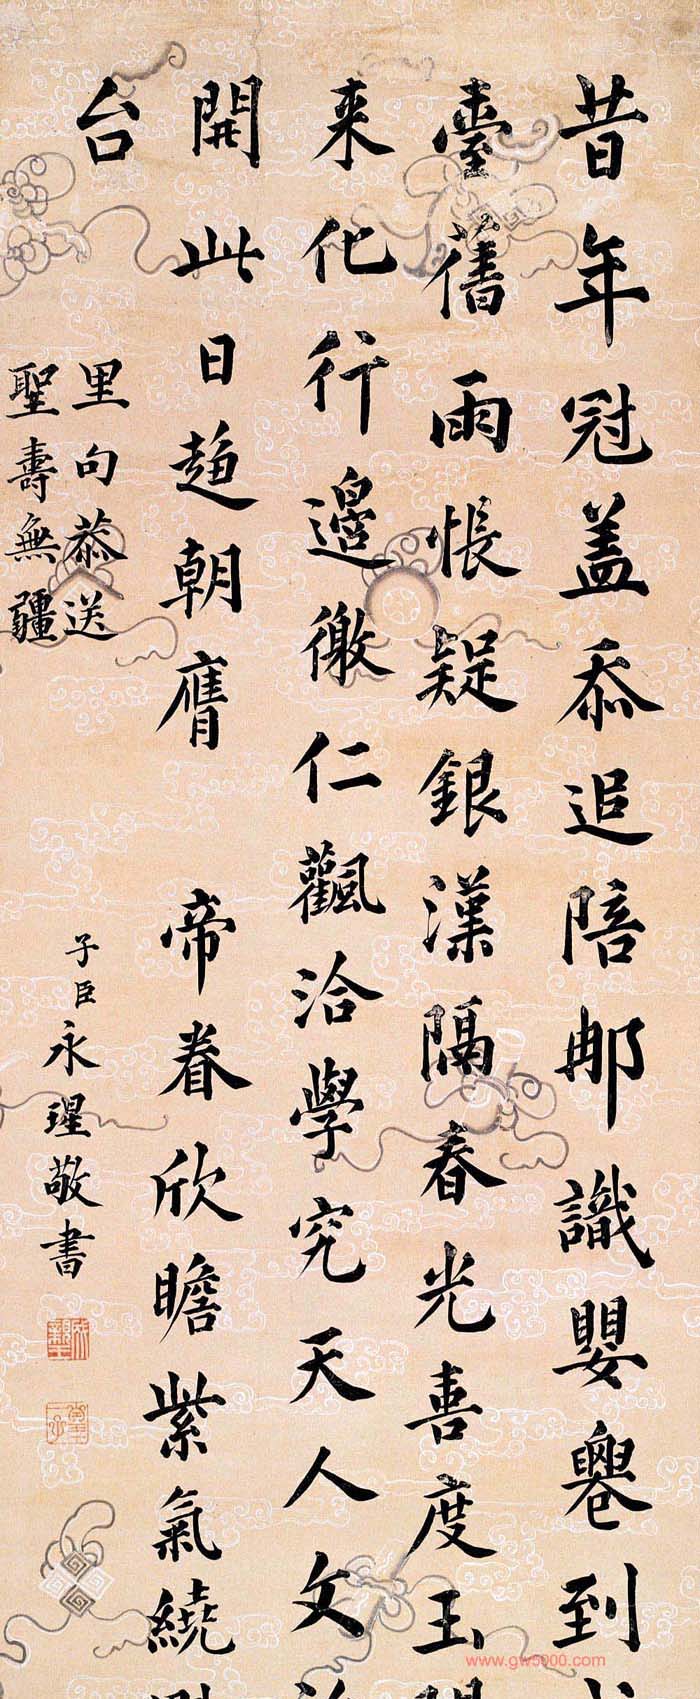 昔年冠盖忝追陪那識嬰到
臺舊雨悵疑銀漢隔春光喜度玉
来化行邊徼仁飌洽學究天人文
開此日趋朝膺帝眷欣瞻紫氣繞
台
里句恭送
聖壽無疆
子臣永瑆敬書
www.gw5000.com